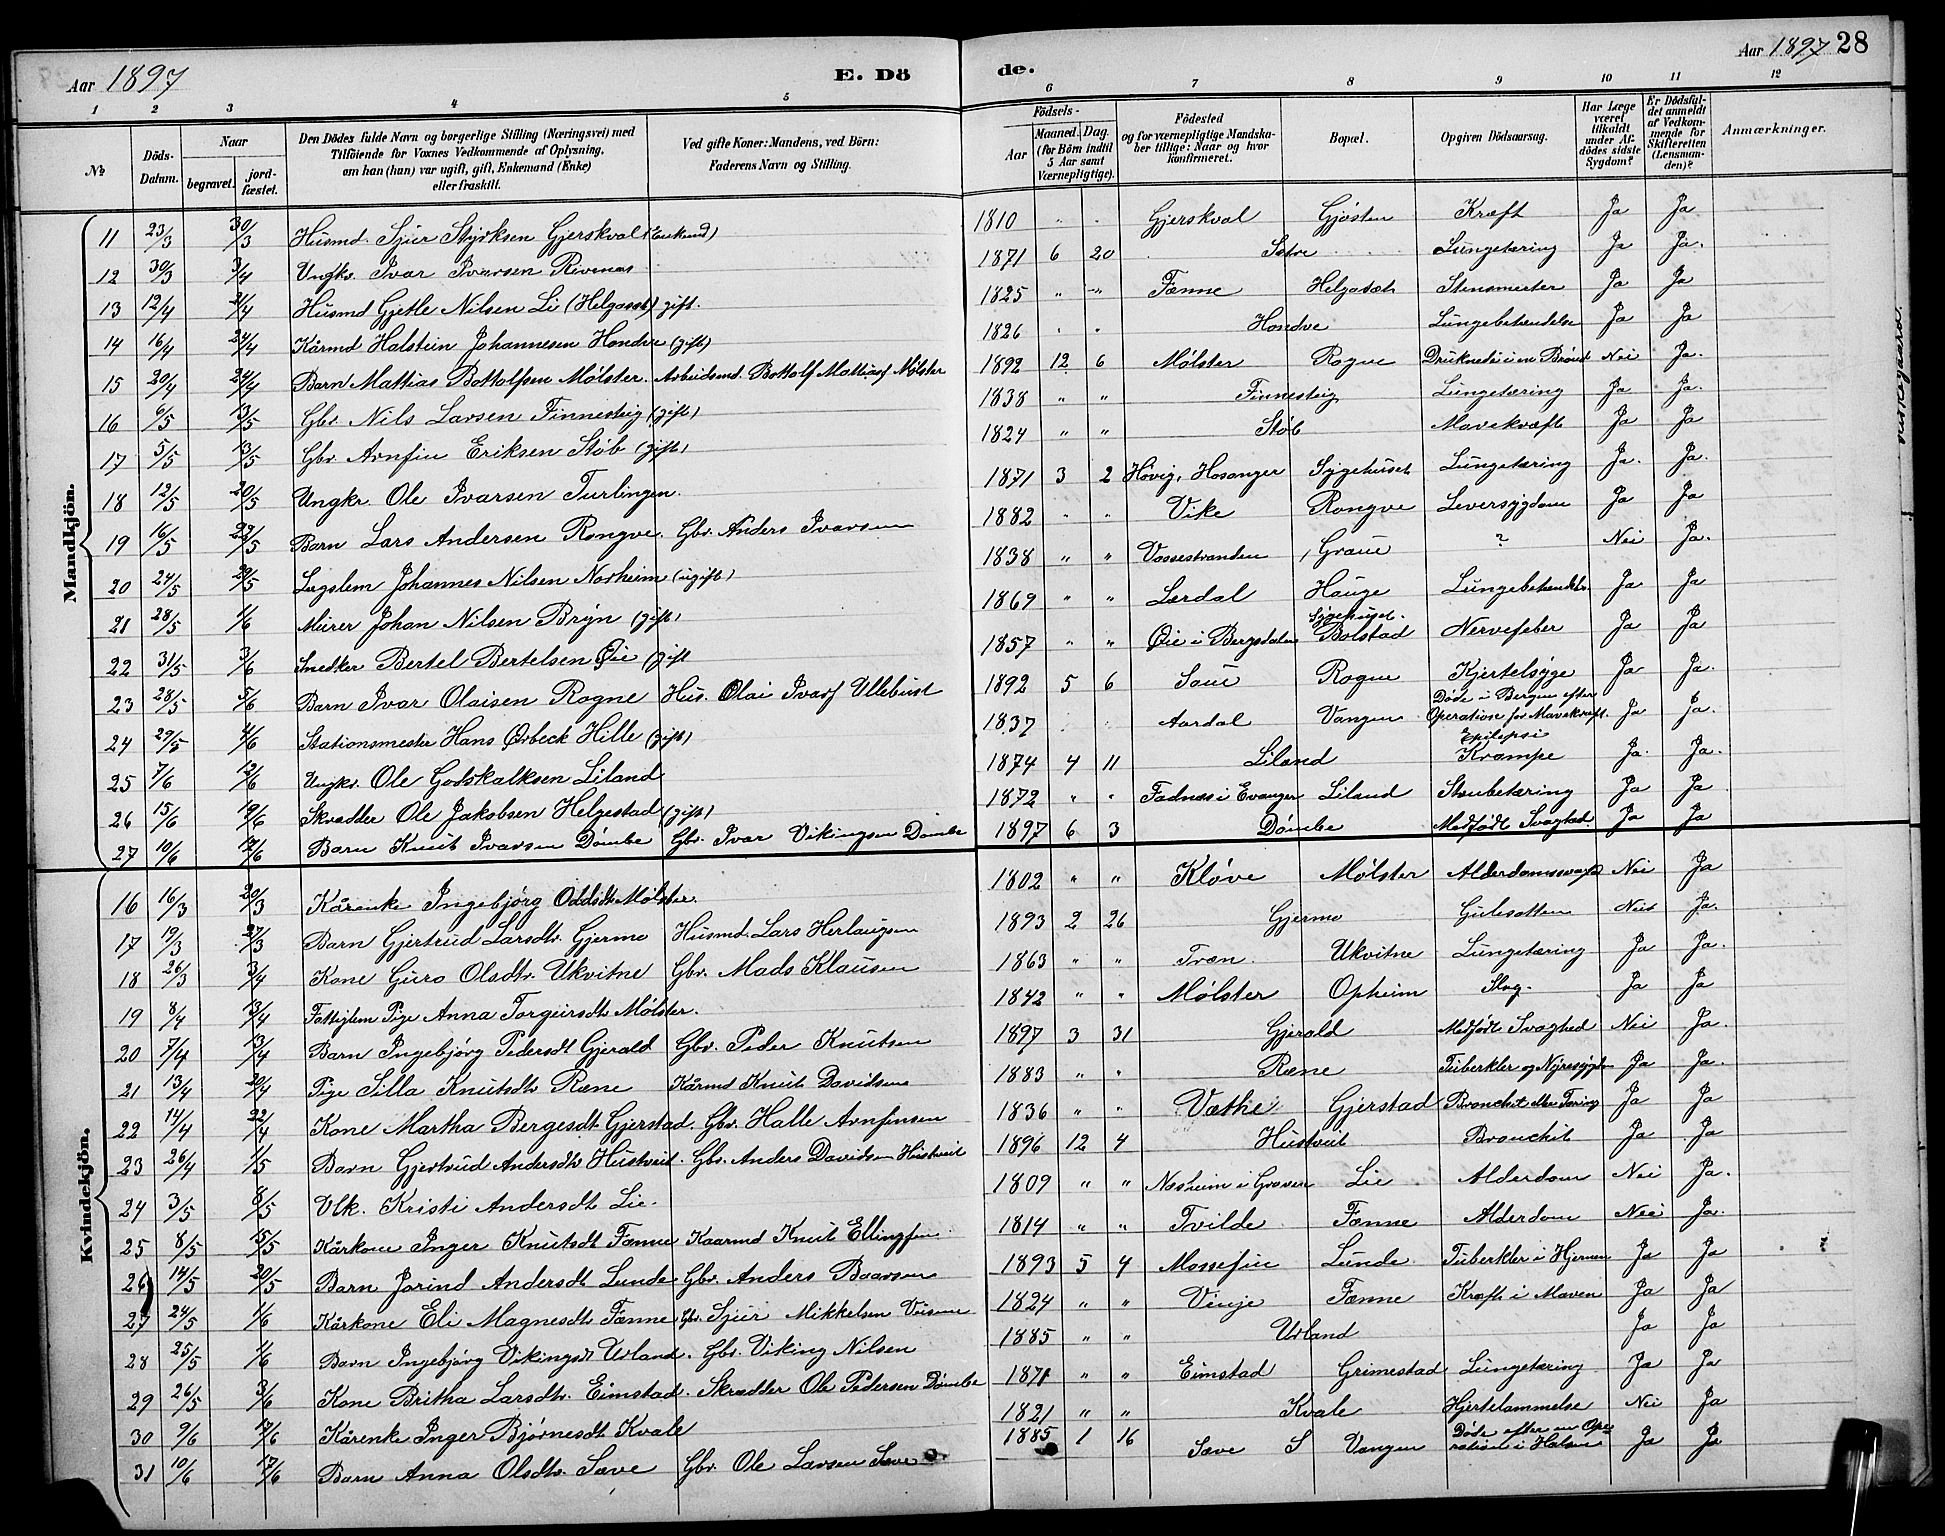 Aar 1897 E. Dö de. Aar 1897 28
1 2 3 4 5 6 7 8 9 10 11 12
№ Döds-Datum. Naar begravet. jordfæstet. Den Dödes fulde Navn og borgerlige Stilling (Næringsvei) med Tilföiende for Voxnes Vedkommende af Oplysning, om han (hun) var ugift, gift, Enkemand (Enke) eller fraskilt. Ved gifte Koner: Mandens, ved Börn: Faderens Navn og Stilling. Födsels- Aar Maaned. Dag. (for Börn indtil 5 Aar samt Værnepligtige). Födested og for værnepligtige Mandskaber tillige: Naar og hvor konfirmeret. Bopæl. Opgiven Dödsaarsag. Har Læge været tilkaldt under Afdödes sidste Sygdom? Er Dödsfaldet anmeldt af Vedkommende for Skifteretten (Lensmanden)? Anmærkninger.
Mandkjön.
11 23/3 30/3 Husmd. Sjur Styrksen Gjerskval (Enkemd) 1810 " " Gjerskval Gjösten Kræft Ja Ja
12 30/3 3/4 Ungkr. Ivar Ivarsen Rivenæs 1871 6 20 Lungetæring Ja Ja.
13 12/4 21/4 Husmd Gjetle Nilsen Li (Helgaset) gift. 1825 " " Fænne Helgaset Stensmerter Ja Ja
14 16/4 24/4 Kårmd Halstein Johannesen Hondve (gift) 1826 " " Hondve Lungebetændelse Ja Ja
15 20/4 24/4 Barn Mattias Bottolfsen Mølster. Arbeidsmd. Bottolf Mattiasf Mølster 1892 12 6 Mølster Rogne Druknet i en Brønd Nei Ja.
16 6/5 13/5 Gbr. Nils Larsen Finnesteig (gift) 1838 " " Finnesteig Lungetæring Ja Ja.
17 5/5 13/5 Gbr. Arnfin Eriksen Støb (gift) 1824 " " Støb Mavekræft Ja Ja
18 12/5 20/5 Ungkr. Ole Ivarsen Turlingen. 1871 3 2 Høvig, Hosanger Sygehuset Lungetæring Ja. Ja.
19 16/5 22/5 Barn Lars Andersen Rongve. Gbr. Anders Ivarsen 1882 " " Vike Rongve Leversygdom Ja Ja
20 24/5 29/5 Lægslem Johannes Nilsen Norheim (ugift) 1838 " " Vossestranden Graue ? Nei Ja.
21 28/5 1/6 Murer Johan Nilsen Bryn (gift) 1869 " " Lærdal Hauge Lungebetændelse. Ja Ja
22 31/5 3/6 Snedker Bertel Bertelsen Øie (gift 1857 " " Øie i Bergsdalen Sygehuset. Bolstad Nervefeber Ja Ja
23 28/5 5/6 Barn Ivar Olaisen Rogne Hus. Olai Ivarf Ullebust 1892 5 6 Saue Rogne Kjertelsyge Ja Ja.
24 29/5 4/6 Stationsmester Hans Ørbeck Hille (gift) 1837 Aardal Vangen Døde i Bergen efter Operation for Mavekræft. Ja Ja.
25 7/6 12/6 Ungkr. Ole Godskalksen Liland 1874 4 11 Liland Epilepsi Krampe Ja. Ja.
26 15/6 19/6 Skrædder Ole Jakobsen Helgestad (gift) 1872 " " Fadnæs i Evanger Liland Strubetæring Ja Ja
27 10/6 19/6 Barn Knut Ivarsen Dømbe Gbr. Ivar Vikingsen Dømbe 1897 6 3 Dømbe Medfødt Svaghed. Ja Ja
Kvindekjön.
16 16/3 20/3 Kårenke Ingebjørg Oddsdt Mølster. 1802 " " Kløve Mølster Alderdomssvagh Nei Ja
17 19/3 27/3 Barn Gjertrud Larsdtr. Gjermo Husmd. Lars Herlaugsen 1893 2 26 Gjermo Gulesotten Nei Ja.
18 26/3 3/4 Kone Guro Olsdtr. Ukvitne Gbr. Mads Klausen 1863 " " Træn Ukvitne Lungetæring Ja Ja.
19 8/4 13/4 Fattiglem Pige Anna Torgeirsdtr Mølster. 1842 " " Mølster Opheim Slag. Ja Ja
20 7/4 13/4 Barn Ingebjørg Pedersdt Gjerald Gbr. Peder Knutsen 1897 3 31 Gjerald Medfødt Svaghed Nei Ja.
21 13/4 20/4 Pige Silla Knutsdtr Rene Kårmd Knut Davidsen 1883 " " Rene Tuberkler og Nyresygdom Ja Ja.
22 14/4 22/4 Kone Martha Bergesdt. Gjerstad. Gbr. Halle Arnfinsen 1836 " " Væthe Gjerstad Bronchit eller Tæring Ja Ja
23 26/4 1/5 Barn Gjertrud Andersdtr Hustveit. Gbr. Anders Davidsen Hustveit 1896 12 4 Hustveit Bronchit Ja Ja
24 3/5 8/5 Vlk. Kristi Andersdt Lie. 1809 " " Næsheim i Graven Lie Alderdom Nei Ja.
25 8/5 15/5 Kårkone Inger Knutsdt Fænne Kaarmd Knut Ellingsen 1814 " " Tvilde Fænne Alderdom Nei Ja.
26 14/5 20/5 Barn Jorind Andersdt Lunde Gbr. Anders Baarsen 1893 5 4 Mossefin Lunde Tuberkler i Hjernen Ja Ja
27 24/5 1/6 Kårkone Eli Magnesdt Fænne Gbr. Sjur Mikkelsen 1824 " " Vinje Fænne Kræft i Maven Ja Ja
28 25/5 1/6 Barn Ingebjørg Vikingsdt Urland. Gbr. Viking Nilsen 1885 " " Urland Ja Ja
29 26/5 3/6 Kone Britha Larsdtr. Eimstad. Skrædder Ole Pedersen Dømbe 1871 " " Eimstad Grimestad Lungetæring Ja Ja
30 9/6 17/6 Kårenke Inger Bjørnesdt Kvale 1821 " " Kvale Hjertelammelse Nei Ja
31 10/6 17/6 Barn Anna Olsdtr. Sæve Gbr. Ole Larsen Sæve 1885 1 16 Sæve S Vangen Døde efter en Operation i Halsen Ja Ja